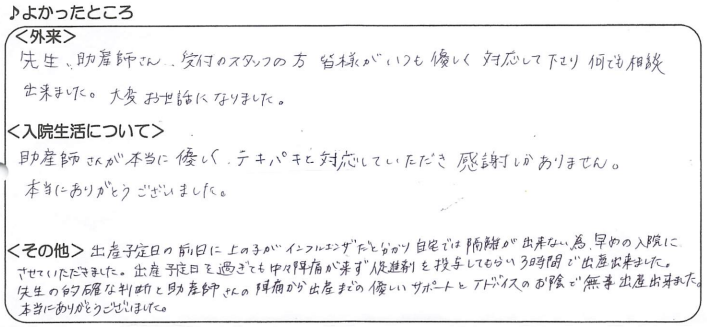 ♪よかったところ
＜外来＞
先生、助産師さん、受付のスタッフの方 皆様がいつも優しく 対応して下さり 何でも相談
出来ました。大変お世話になりました。
＜入院生活について＞
助産師さんが本当に優しく、テキパキと対応していただき 感謝しかありません。
本当にありがとうございました。
＜その他＞ 出産予定日の前日に上の子がインフルエンザだと分かり自宅では隔離が出来ない為、早めの入院に
させていただきました。出産予定日を過ぎても中々陣痛が来ず促進剤を投与してもらい3時間で出産出来ました。
先生の的確な判断と助産師さんの陣痛から出産までの優しいサポートとアドバイスのお陰で無事出産出来ました。
本当にありがとうございました。